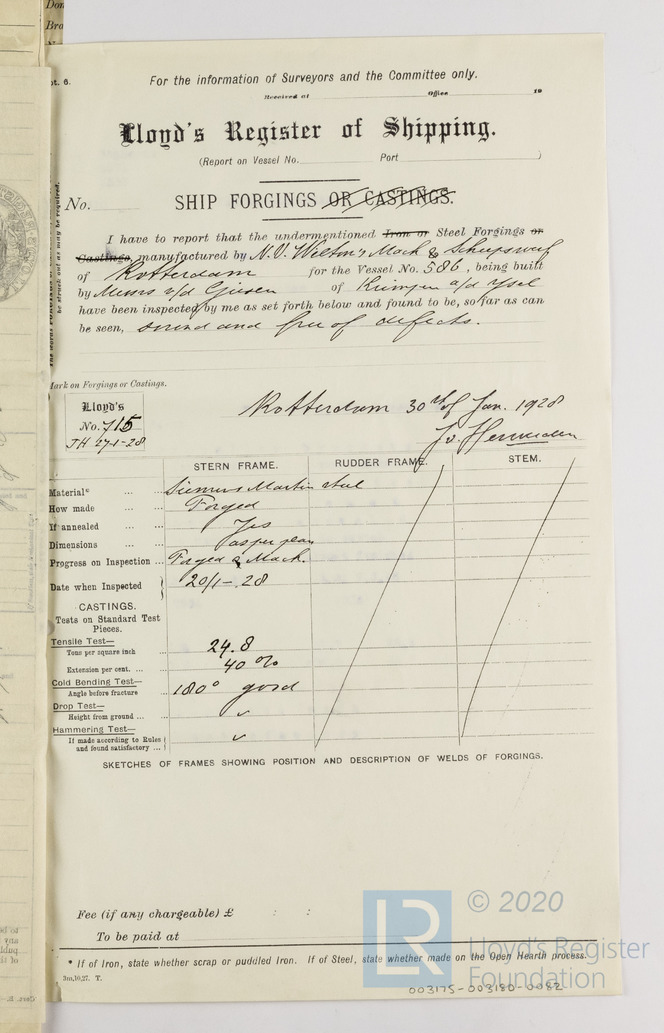 pt. 6.
For the information of Surveyors and the Committee only.
Received at Office 19
Lloyd's Register of Shipping.
(Report on Vessel No. Port )
No. SHIP FORGINGS OR CASTINGS.
I have to report that the undermentioned Iron or Steel Forgings or
Castings, manufactured by N.V. Wilton's Mach & Scheepswerf
of Rotterdam for the Vessel No. 586, being built
by Messrs v/d Giessen of Krimpen a/d Ysel
have been inspected by me as set forth below and found to be, so far as can
be seen, sound and free of defects.
be struck out as may be required.
Mark on Forgings or Castings.
Lloyd's
No. 715
JH 27-1-28
Rotterdam 30th of Jan. 1928
STERN FRAME. RUDDER FRAME. STEM.
Material* ... ... Siemens Martin steel
How made ... ... Forged
If annealed ... ... Yes
Dimensions ... ... as per plan
Progress on Inspection ... Forged & Mach.
Date when Inspected 20/1-.28
CASTINGS.
Tests on Standard Test
Pieces.
Tensile Test—
Tons per square inch 24.8
Extension per cent. ... ... 40 %
Cold Bending Test—
Angle before fracture 180° good
Drop Test—
Height from ground ... ... ✓
Hammering Test—
If made according to Rules
and found satisfactory ... ✓
SKETCHES OF FRAMES SHOWING POSITION AND DESCRIPTION OF WELDS OF FORGINGS.
Fee (if any chargeable) £ : :
To be paid at
* If of Iron, state whether scrap or puddled Iron. If of Steel, state whether made on the Open Hearth process.
3m,10,27. T.
LR
© 2020
Lloyd's Register
Foundation
003175-003180-0082